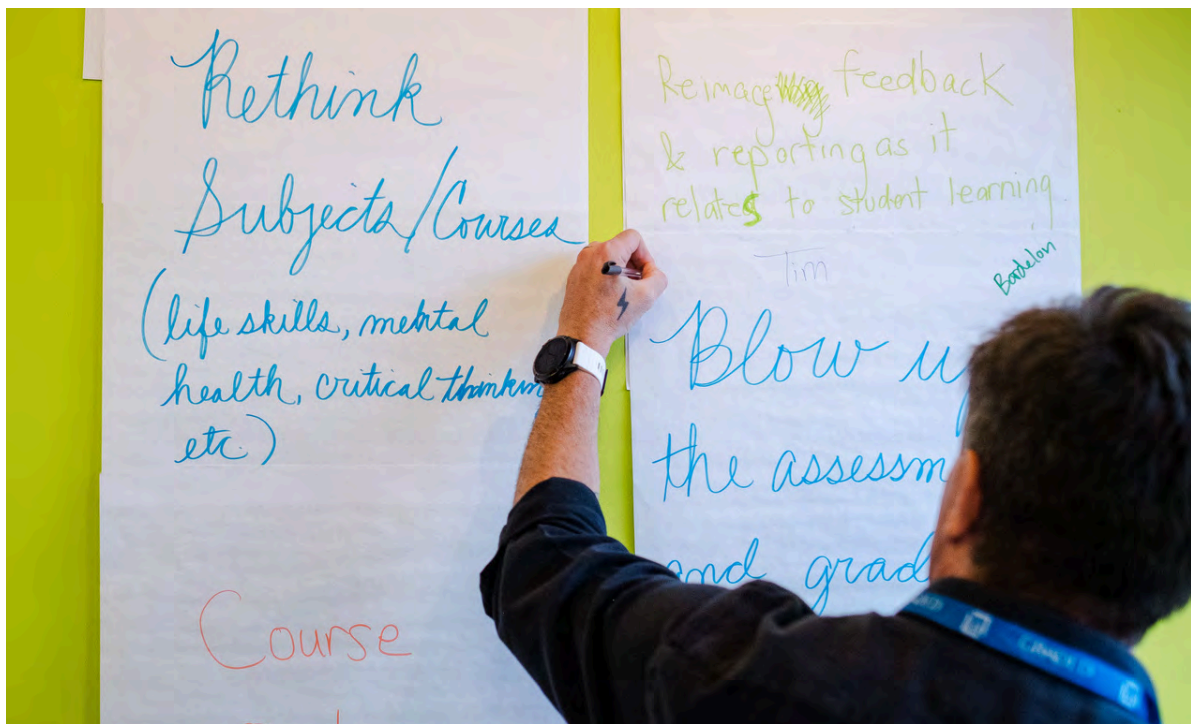 Rethink
Subjects/Courses
(life skills, mental
health, critical thinkin
etc.)
Course
Reimage feedback
& reporting as it
relates to student learning
Tim
Bordelon
Blow u
the assessm
and grad